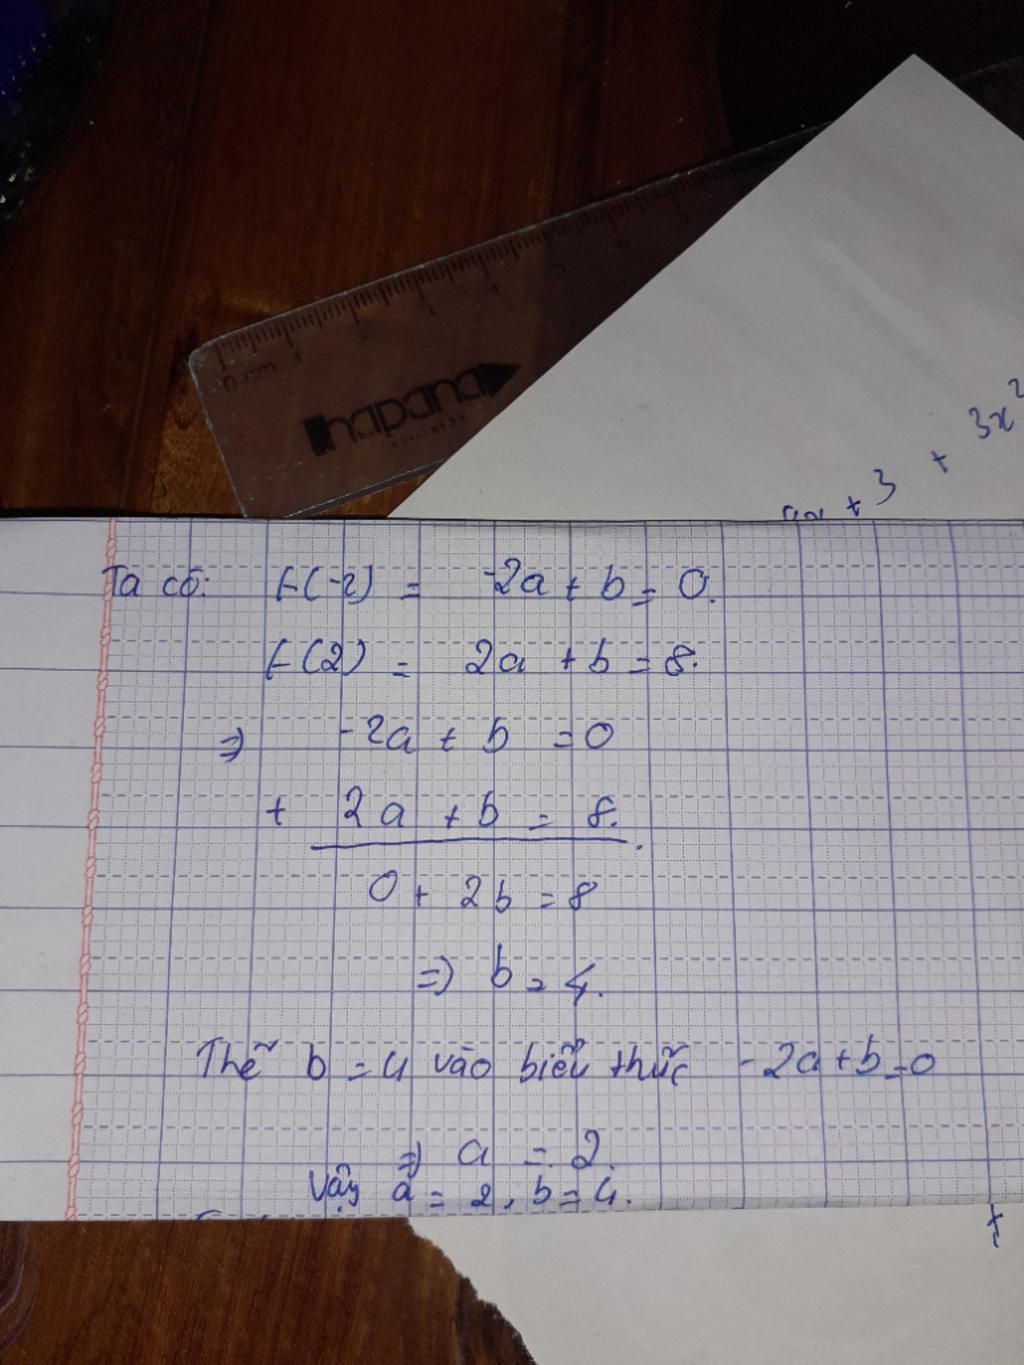 hapana
3x²
+ 3 +
Ta có: f(-2) = -2a + b = 0.
f(2) = 2a + b = 8.
=> -2a + b = 0
+ 2a + b = 8.
0 + 2b = 8
=> b = 4.
Thế b = 4 vào biểu thức -2a + b = 0
=> a = 2.
Vậy a = 2, b = 4.